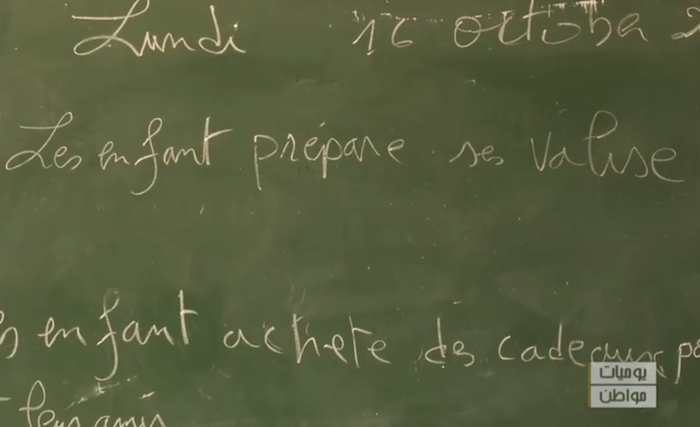 Lundi 16 octobre
Les enfant prépare ses valise
enfant achete des cadeaux
leur amis
يوميات
مواطن